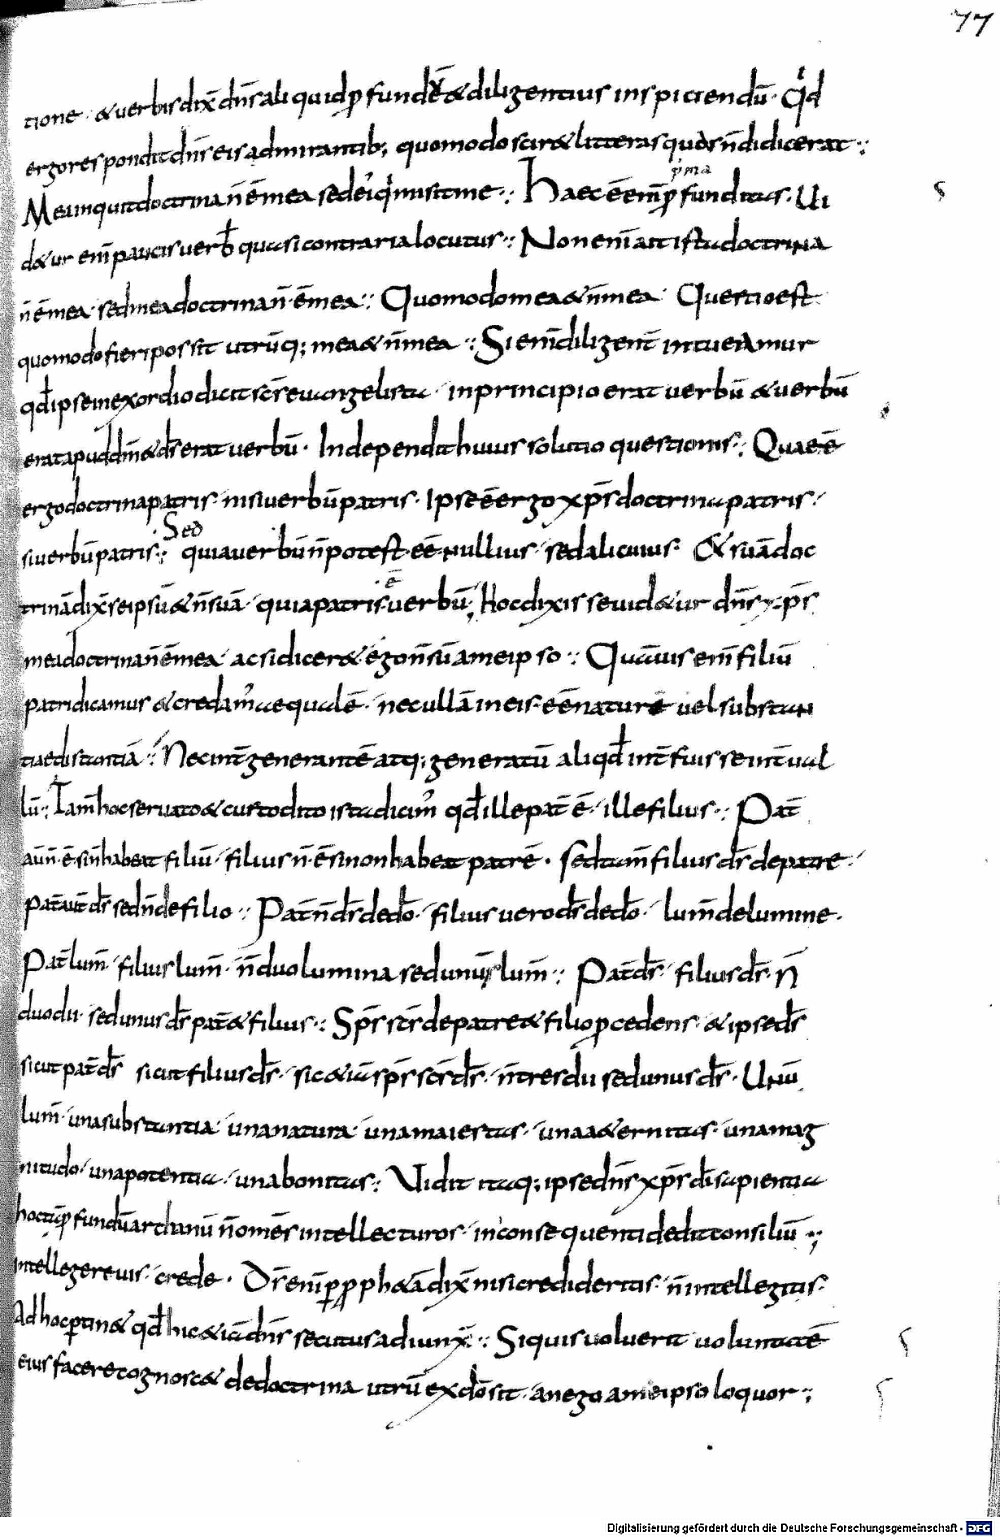 77
tione · & verbis dix̄ dn̄s aliquid ꝓfundē & diligentius inspiciendū · Qid
ergo respondit dn̄s eis admirantib; quomodo scir& litteras quas n̄ didicerat :·
Mea inquit doctrina n̄ ē mea sed ei' qi misit me :· Haec ē enī ꝓfunditas · Ui
prima
d&ur enī paucis verb̄ quasi contraria locutus :· Non enī ait ista doctrina
n̄ ē mea · sed mea doctrina n̄ · ē mea :· Quomodo mea & n̄ mea · Questio est
quomodo fieri possit utrūq; mea & n̄ mea :· Si enī diligent̄ intueamur
qđ ipse in exordio dicit sc̄s evangelista · in principio erat verbū & verbū
erat apud dm̄ & ds̄ erat verbū · Inde pendit huius solutio questionis :· Quae ē
ergo doctrina patris · nisi verbū patris · Ipse ē ergo xp̄s doctrina patris ·
Sed
si verbū patris :· quia verbū n̄ potest eē nullius · sed alicuius · & suā doc
ē
trinā dix̄ seipsū & n̄ suā · quia patris · verbū, hoc dixisse uid&ur dn̄s xp̄s
mea doctrina n̄ ē mea · ac si dicer& ego n̄ sū a me ipso :· Quāuis enī filiū
patri dicamus & credam' aequalē · nec ullā in eis eē naturę uel substan
tiae distantiā :· Nec int̄ generantē atq; generatū aliqđ int̄fuisse int̄ual
lū :· Tam̄ hoc servato & custodito ista dicim' qđ ille pat̄ ē · ille filius :· Pat̄
aūn̄ · ē si n̄ habeat filiū · filius n̄ ē si non habeat patrē · sed tam̄ filius ds̄ de patre ·
Pat̄ aut̄ ds̄ sed n̄ de filio :· Pat̄ n̄ ds̄ de dō · filius uero ds̄ de dō · lum̄ de lumine ·
Pat̄ lum̄ · filius lum̄ · n̄ duo lumina sed unū lum̄ :· Pat̄ ds̄ · filius ds̄ · n̄
duo dii · sed unus ds̄ pat̄ & filius :· Sp̄s sc̄s de patre & filio ꝓcedens · & ipse ds̄
sicut pat̄ ds̄ sicut filius ds̄ · sic & iā sp̄s sc̄s ds̄ · n̄ tres dii sed unus ds̄ · Unū
lum̄ · una substantia · una natura · una maiestas · una a&ernitas · una mag
nitudo · una potentia · una bonitas :· Vidit itaq; ipse dn̄s xp̄s dī sapientia
hoc tā ꝓfundū archanū n̄ omēs intellecturos · in consequenti dedit consiliū :·
intellegere uis · crede · Ds̄ enī ꝑ ꝓph&ā dix̄ nisi credideritis · n̄ intellegitis ·
Ad hoc ꝑtin& qđ hic & iā dn̄s secutus adiunx̄ :· Si quis uoluerit uoluntatē
eius facere cognosc& de doctrina utrū ex dō sit · an ego a me ipso loquor :·